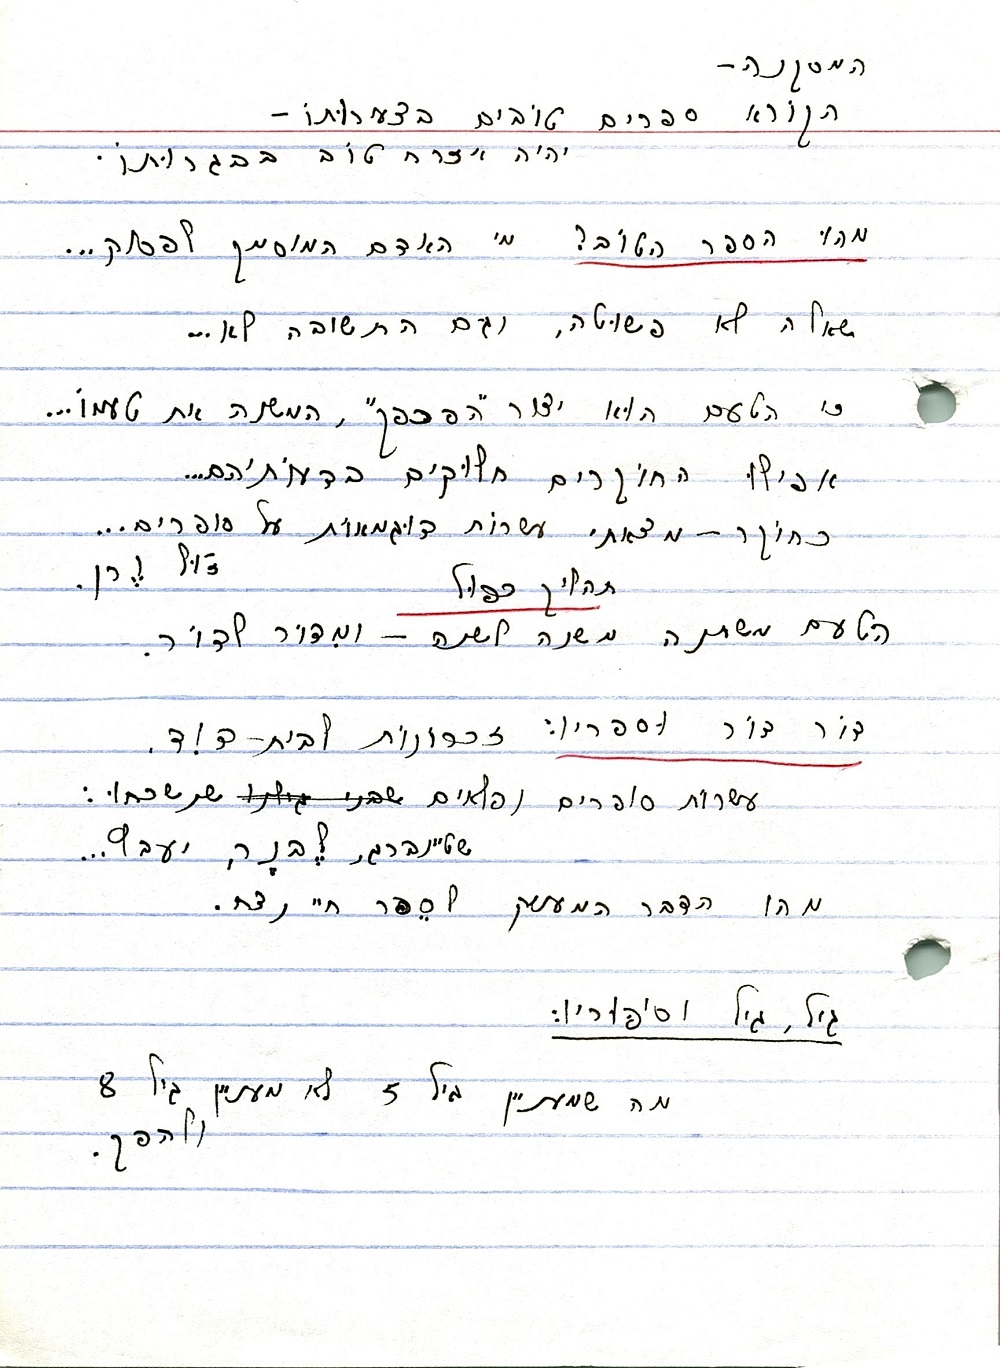 המסקנה–
הקורא ספרים טובים בצעירותו –
יהיה אזרח טוב בבגרותו.
מהו הספר הטוב? מי האדם המוסמך לפסוק...
שאלה לא פשוטה, וגם התשובה לא...
כי הטעם הוא יצור "הפכפך", המשנה את טעמו...
אפילו החוקרים חלוקים בדעותיהם...
כחוקר – מצאתי עשרות דוגמאות על סופרים...
ז'ול וֶרן.
תהליך כפול
הטעם משתנה משנה לשנה – ומִדור לדור.
דור דור וספריו: זכרונות לבית-דוִד.
עשרות סופרים נפלאים שבני גילנו שנשכחו:
שטיינברג, לֶבנָה, יערי...
מהו הדבר המעניק לסֵפר חיי נצח.
גיל, גיל וסיפוריו:
מה שמעניין גיל 5 לא מעניין גיל 8
ולהפך.